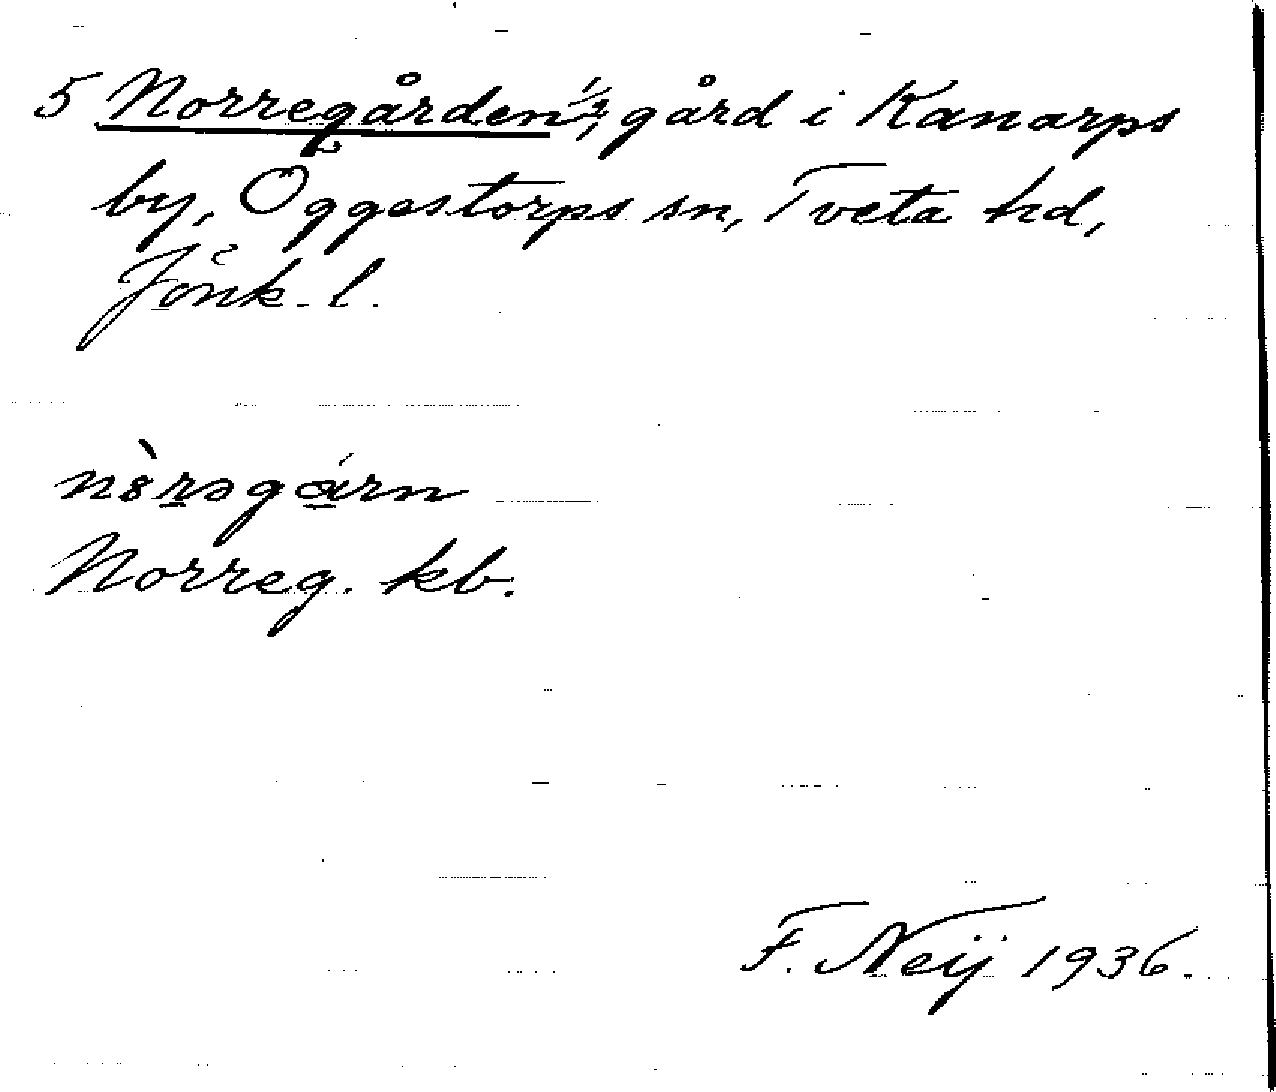 5 Norregården ½, gård i Kanarps
by, Öggestorps sn, Tveta hd,
Jönk. l.
Norreg. kb.
F. Neij 1936.